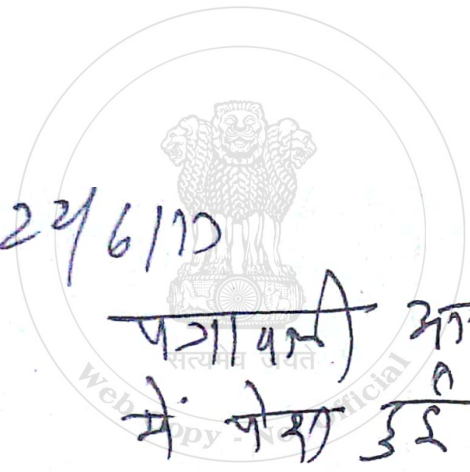 22/6/17
पत्रावली
में पेश हुई
सत्यमेव जयते
Web Copy - Not Official